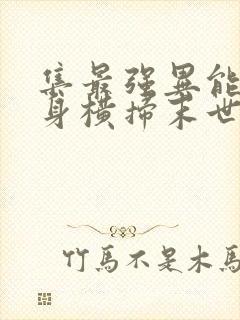 集最强異能
身橫掃末世
竹馬不是木馬